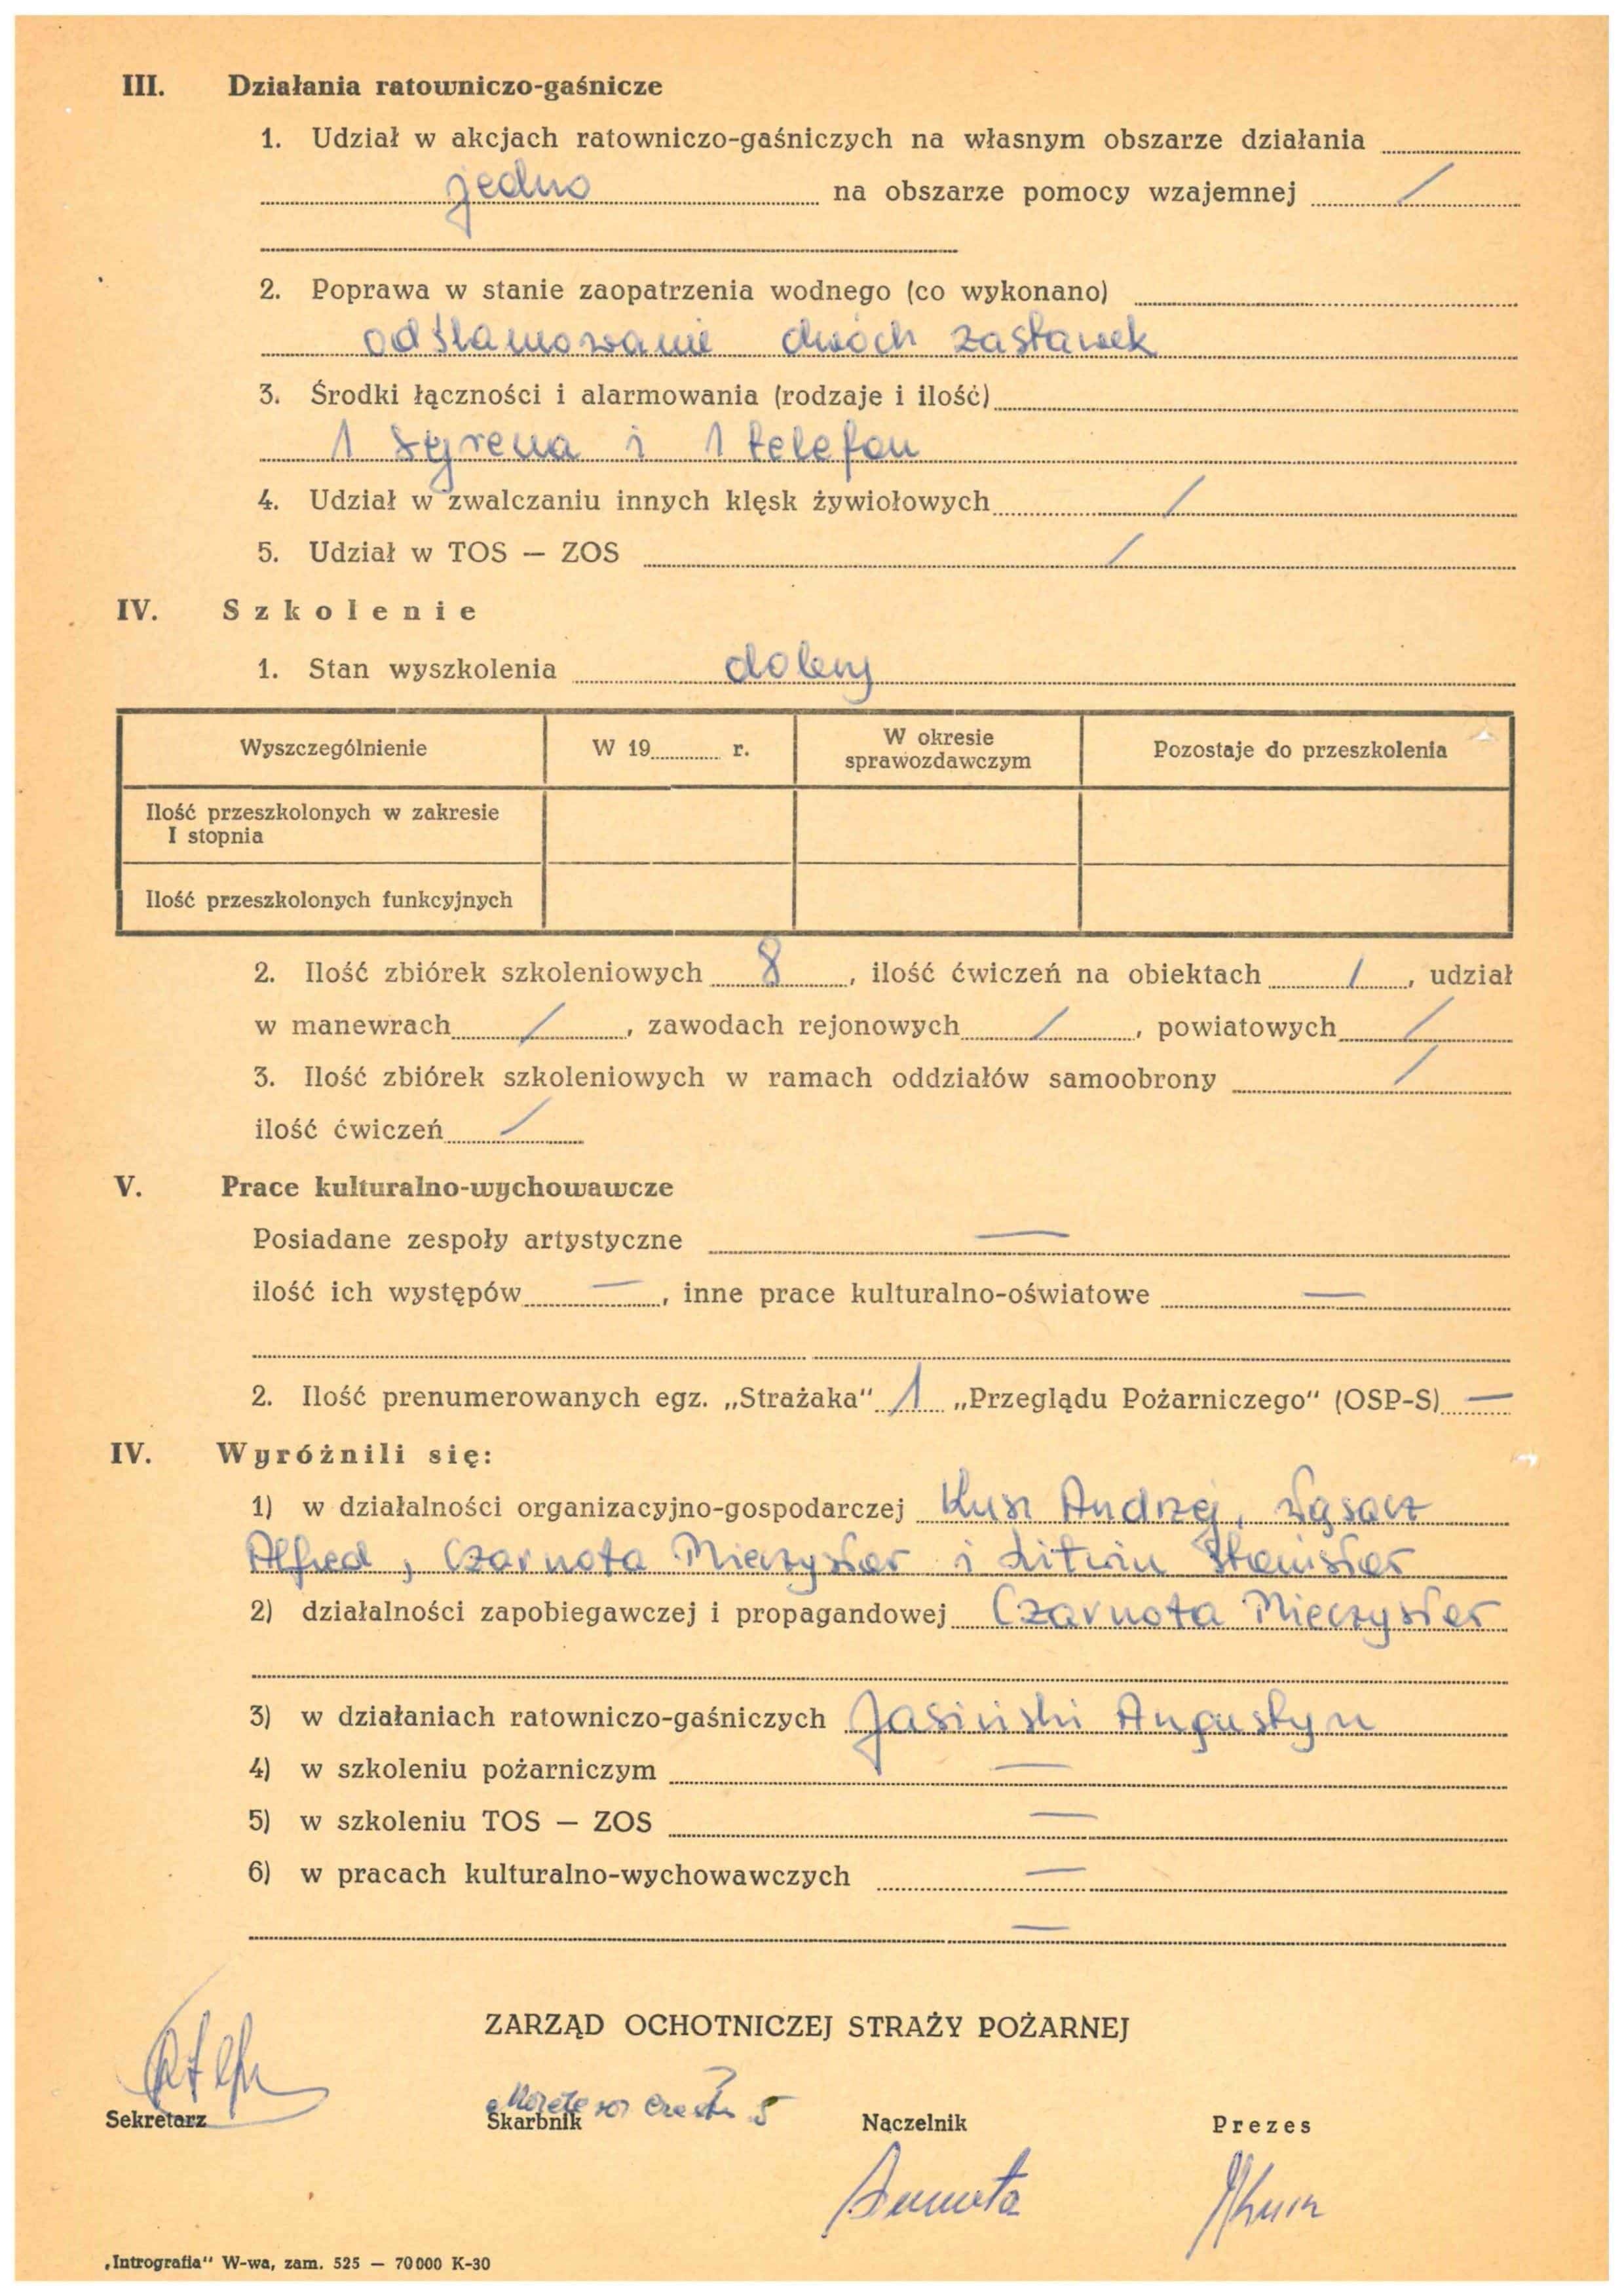 III. Działania ratowniczo-gaśnicze
1. Udział w akcjach ratowniczo-gaśniczych na własnym obszarze działania
jedno na obszarze pomocy wzajemnej /
2. Poprawa w stanie zaopatrzenia wodnego (co wykonano)
odślamowanie dwóch zastawek
3. Środki łączności i alarmowania (rodzaje i ilość)
1 syrena i 1 telefon
4. Udział w zwalczaniu innych klęsk żywiołowych /
5. Udział w TOS — ZOS /
IV. Szkolenie
1. Stan wyszkolenia dobry
Wyszczególnienie W 19 r. W okresie sprawozdawczym Pozostaje do przeszkolenia
Ilość przeszkolonych w zakresie
I stopnia
Ilość przeszkolonych funkcyjnych
2. Ilość zbiórek szkoleniowych 8, ilość ćwiczeń na obiektach /, udział
w manewrach /, zawodach rejonowych /, powiatowych /
3. Ilość zbiórek szkoleniowych w ramach oddziałów samoobrony /
ilość ćwiczeń /
V. Prace kulturalno-wychowawcze
Posiadane zespoły artystyczne —
ilość ich występów —, inne prace kulturalno-oświatowe —
2. Ilość prenumerowanych egz. „Strażaka" 1 „Przeglądu Pożarniczego" (OSP-S) —
IV. Wyróżnili się:
1) w działalności organizacyjno-gospodarczej Andrzej, Wąsacz
Alfred, Czarnota Mieczysław i Litwin Stanisław
2) działalności zapobiegawczej i propagandowej Czarnota Mieczysław
3) w działaniach ratowniczo-gaśniczych Jasiński Augustyn
4) w szkoleniu pożarniczym —
5) w szkoleniu TOS — ZOS —
6) w pracach kulturalno-wychowawczych —
—
ZARZĄD OCHOTNICZEJ STRAŻY POŻARNEJ
Sekretarz Skarbnik Naczelnik Prezes
„Intrografia" W-wa, zam. 525 — 70000 K-30